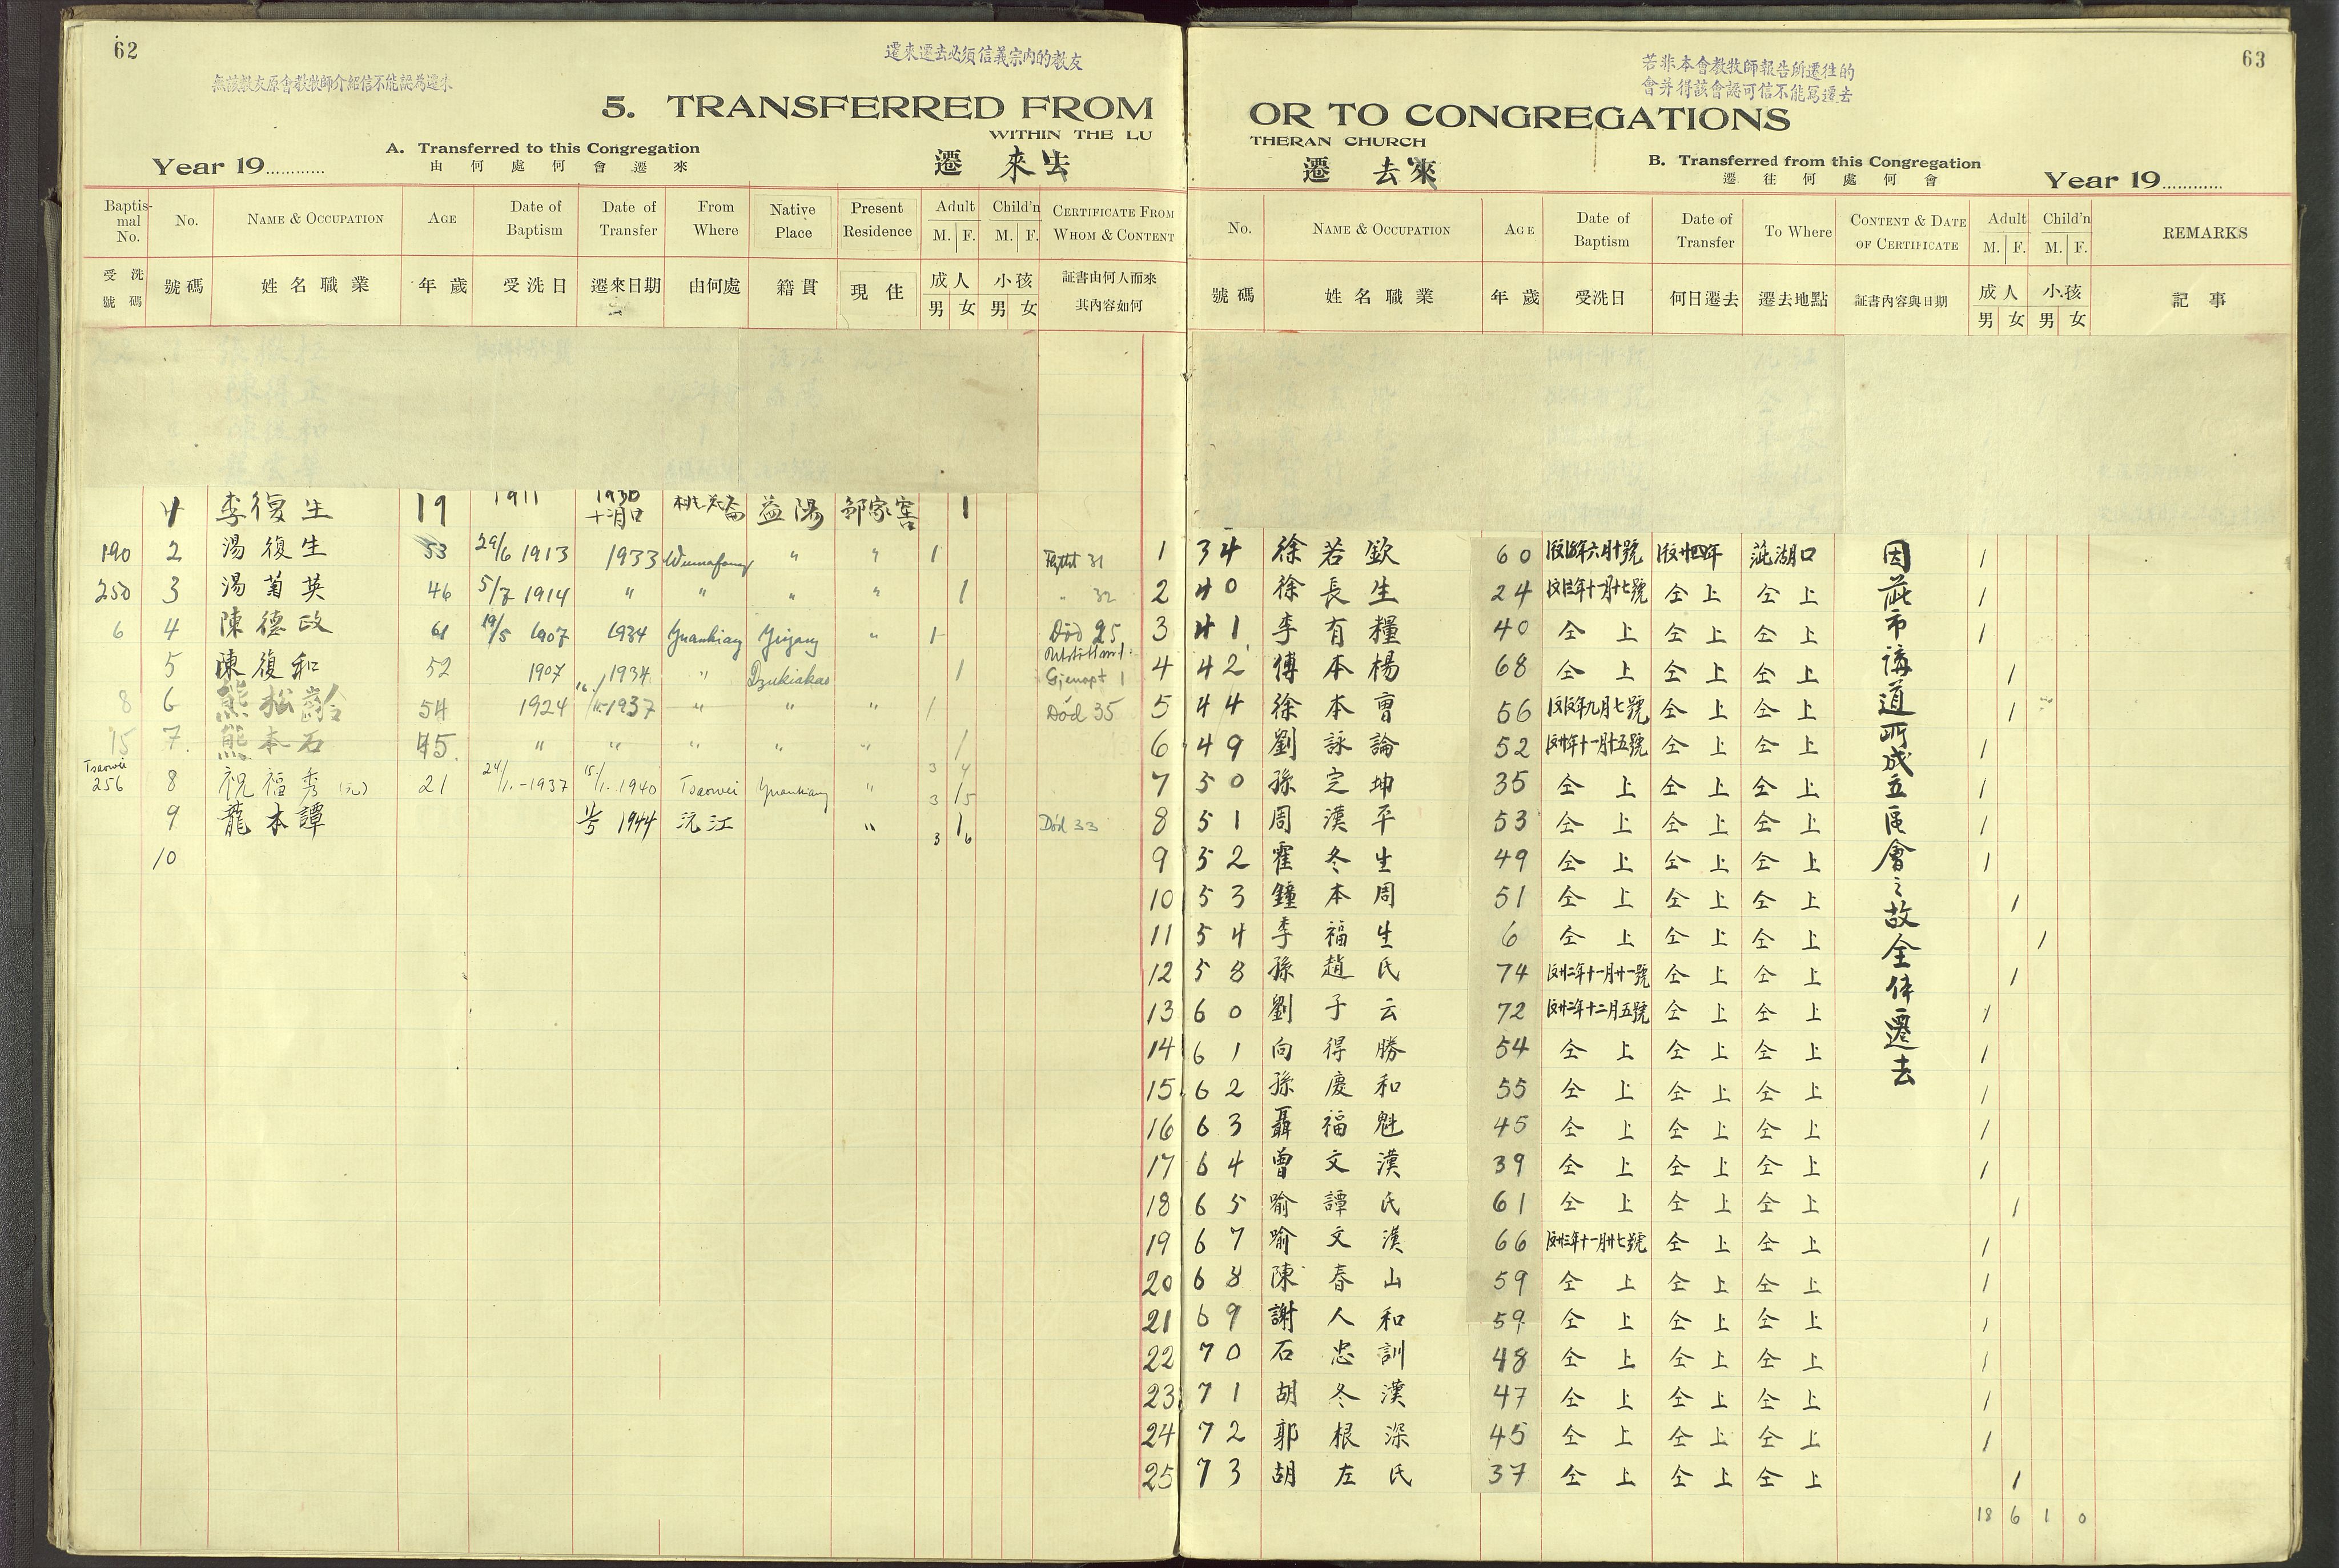 62
遷來遷去必須信義宗內的教友
無該教友原會教牧師介紹信不能認為遷來
5. TRANSFERRED FROM
WITHIN THE LU
A. Transferred to this Congregation
由何處何會遷來
遷來去
Year 19............
Baptismal No. No. NAME & OCCUPATION AGE Date of Baptism Date of Transfer From Where Native Place Present Residence Adult M. F. Child'n M. F. CERTIFICATE FROM WHOM & CONTENT
受洗號碼 號碼 姓名職業 年歲 受洗日 遷來日期 由何處 籍貫 現住 成人 男 女 小孩 男 女 証書由何人而來其內容如何
李復生 19 1911 1930 十二月口 桃花崙 益陽 鄒家窖 1
190 2 湯復生 53 29/6 1913 1933 " " 1 31
250 3 湯菊英 46 5/7 1914 " " " " 1 " 32
6 4 陳德政 61 19/5 1907 1934 Yuankiang Yiyang " 1 Död 25
5 陳復和 52 1907 1934 " 1
8 6 熊松齡 54 1924 1937 " " " 1 Död 35
15 7 熊本石 45 " " " " " 1
3 4
Tsaowei 256 8 祝福秀 21 24/1.-1937 15/1.1940 Tsaowei Yuankiang " 1
3 5
9 龍本譚 1944 沅江 " 1 Död 33
3 6
10
63
若非本會教牧師報告所遷往的
會并得該會認可信不能寫遷去
OR TO CONGREGATIONS
THERAN CHURCH
遷去來
B. Transferred from this Congregation
遷往何處何會
Year 19............
No. NAME & OCCUPATION AGE Date of Baptism Date of Transfer To Where CONTENT & DATE OF CERTIFICATE Adult M. F. Child'n M. F. REMARKS
號碼 姓名職業 年歲 受洗日 何日遷去 遷去地點 証書內容與日期 成人 男 女 小孩 男 女 記事
1 34 徐若欽 60 湖口 1
2 40 徐長生 24 仝上 仝上 1
3 41 李有糧 40 仝上 仝上 仝上 1
4 42 傅本楊 68 仝上 仝上 仝上 1
5 44 徐本曹 56 仝上 仝上 1
6 49 劉詠論 52 仝上 仝上 1
7 50 孫定坤 35 仝上 仝上 仝上 1
8 51 周漢平 53 仝上 仝上 仝上 1
9 52 霍冬生 49 仝上 仝上 仝上 1
10 53 鍾本周 51 仝上 仝上 仝上 1
11 54 李福生 6 仝上 仝上 仝上 1
12 58 孫趙氏 74 仝上 仝上 1
13 60 劉子云 72 仝上 仝上 1
14 61 向得勝 54 仝上 仝上 仝上 1
15 62 孫慶和 55 仝上 仝上 仝上 1
16 63 聶福魁 45 仝上 仝上 仝上 1
17 64 曾文漢 39 仝上 仝上 仝上 1
18 65 喻譚氏 61 仝上 仝上 仝上 1
19 67 喻文漢 66 仝上 仝上 1
20 68 陳春山 59 仝上 仝上 仝上 1
21 69 謝人和 59 仝上 仝上 仝上 1
22 70 石忠訓 48 仝上 仝上 仝上 1
23 71 胡冬漢 47 仝上 仝上 仝上 1
24 72 郭根深 45 仝上 仝上 仝上 1
25 73 胡左氏 37 仝上 仝上 仝上 1
18 6 1 0
因茈市講道所成立區會之故全体遷去